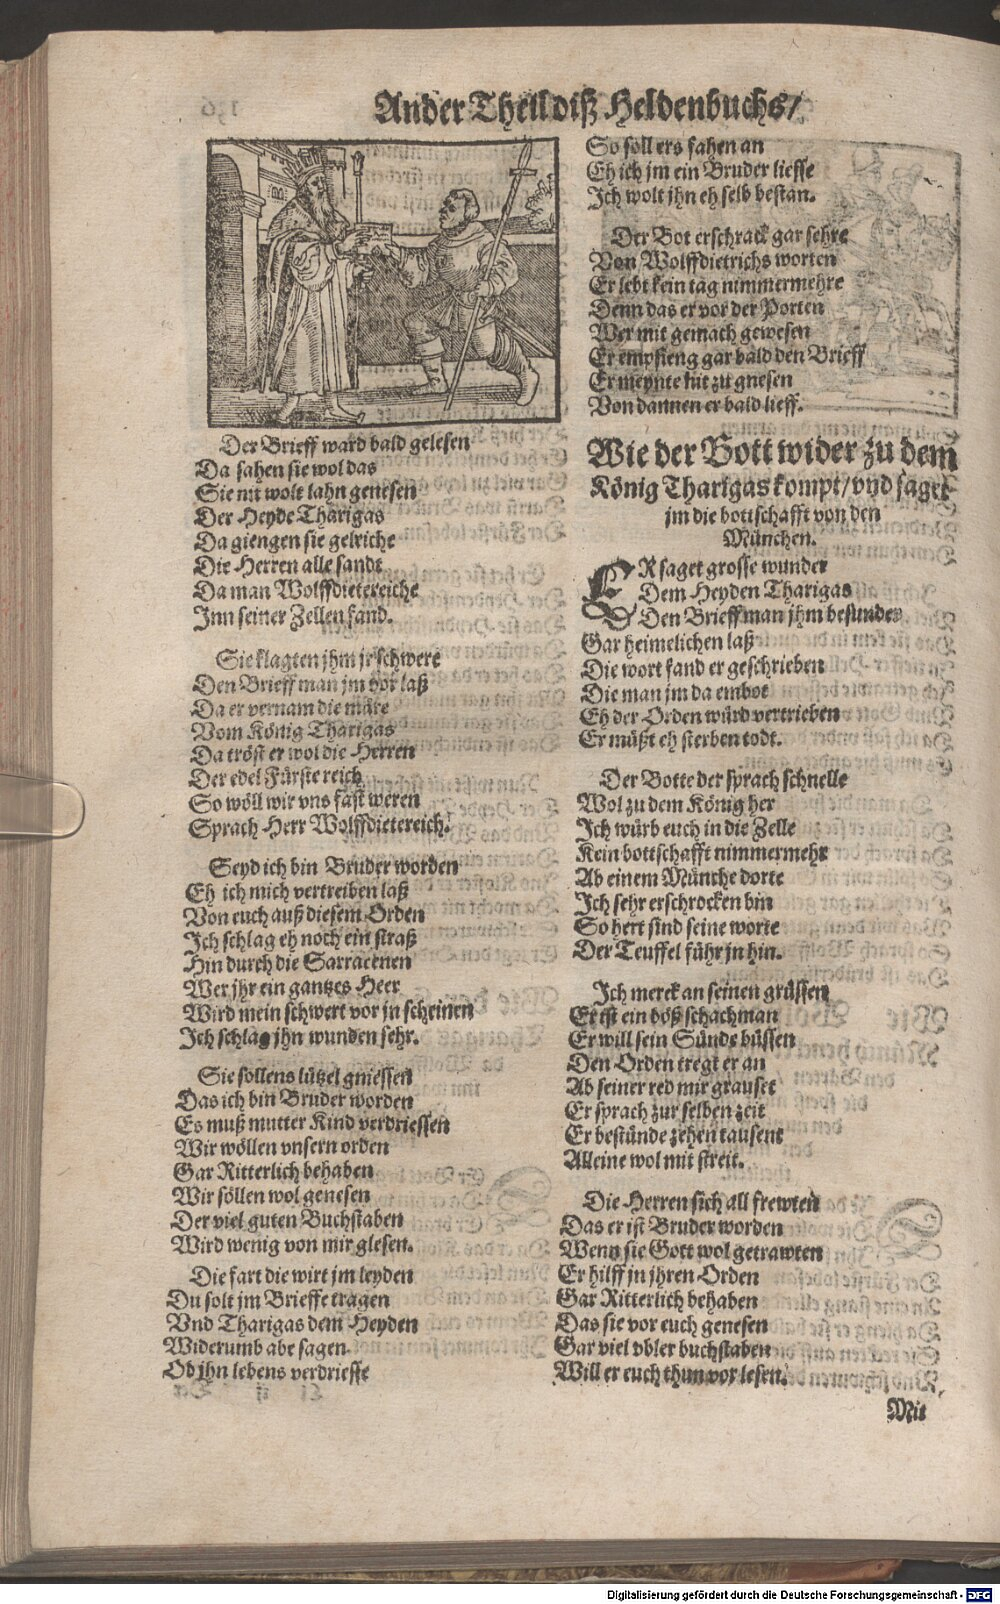 Ander Theil diß Heldenbuchs/
Der Brieff ward bald gelesen
Da sahen sie wol das
Sie nit wolt lahn genesen
Der Heyde Tharigas
Da giengen sie geleiche
Die Herren alle sandt
Da man Wolffdietereiche
Inn seiner Zellen fand.
Sie klagten jhm jr schwere
Den Brieff man jm vor laß
Da er vernam die märe
Vom König Tharigas
Da tröst er wol die Herren
Der edel Fürste reich
So wöll wir vns fast weren
Sprach Herr Wolffdietereich.
Seyd ich bin Bruder worden
Eh ich mich vertreiben laß
Von euch auß diesem Orden
Ich schlag eh noch ein straß
Hin durch die Sarracenen
Wer jhr ein gantzes Heer
Wird mein schwert vor jn scheinen
Ich schlag jhn wunden sehr.
Sie sollens lützel gniessen
Das ich bin Bruder worden
Es muß mutter Kind verdriessen
Wir wöllen vnsern orden
Gar Ritterlich behaben
Wir söllen wol genesen
Der viel guten Buchstaben
Wird wenig von mir glesen.
Die fart die wirt jm leyden
Du solt jm Brieffe tragen
Vnd Tharigas dem Heyden
Widerumb abe sagen
Ob jhn lebens verdrieste
So soll ers fahen an
Eh ich jm ein Bruder liesse
Ich wolt jhn eh selb bestan.
Der Bot erschrack gar sehre
Von Wolffdietrichs worten
Er lebt kein tag nimmermehre
Denn das er vor der Porten
Wer mit gemach gewesen
Er empfieng gar bald den Brieff
Er meynte nit zu gnesen
Von dannen er bald lieff.
Wie der Bott wider zu dem
König Tharigas kompt/vnd saget
jm die bottschafft von den
München.
ER saget grosse wunder
Dem Heyden Tharigas
Den Brieff man jhm besunder
Gar heimelichen laß
Die wort fand er geschrieben
Die man jm da embot
Eh der Orden würd vertrieben
Er müßt eh sterben todt.
Der Botte der sprach schnelle
Wol zu dem König her
Ich würb euch in die Zelle
Kein bottschafft nimmermehr
Ab einem Münche dorte
Ich sehr erschrocken bin
So hert sind seine worte
Der Teuffel führ jn hin.
Ich merck an seinen grüssen
Er ist ein böß schachman
Er will sein Sünde büssen
Den Orden tregt er an
Ab seiner red mir grauset
Er sprach zur selben zeit
Er bestünde zehen tausent
Alleine wol mit streit.
Die Herren sich all frewten
Das er ist Bruder worden
Wenn sie Gott wol getrawten
Er hilff jn jhren Orden
Gar Ritterlich behaben
Das sie vor euch genesen
Gar viel vbler buchstaben
Will er euch thun vor lesen.
Mit
Digitalisierung gefördert durch die Deutsche Forschungsgemeinschaft - DFG